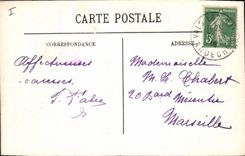 I
CARTE POSTALE
CORRESPONDANCE
ADRESSE
Affectueuses
caresses.
Mademoiselle
M. Chabert
20 Bard
Marseille